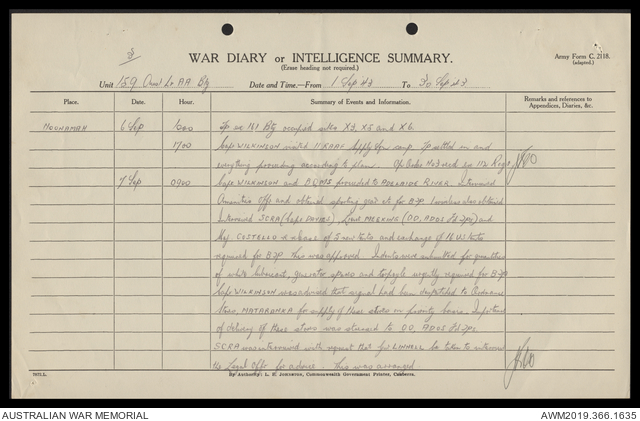 3
WAR DIARY or INTELLIGENCE SUMMARY.
(Erase heading not required.)
Army Form C. 2118.
(adapted.)
Unit 159 Aust Lt AA Bty Date and Time.—From 1 Sep 43 To 30 Sep 43
Place. Date. Hour. Summary of Events and Information. Remarks and references to Appendices, Diaries, &c.
NOONAMAH 6 Sep 1200 Tp 161 Bty occupied sites X3, X5 and X6.
1700 Capt WILKINSON visited camp. Tp settled in and
everything proceeding according to plan. Op Order No 3 recd 112 Regt
7 Sep 0900 Capt WILKINSON and BQMS proceeded to ADELAIDE RIVER. Interviewed
Amenities Offr and obtained sporting gear etc for B Tp. also obtained
Interviewed SCRA (Capt DAVIES), and
Maj COSTELLO release of 5 new tents and exchange of 16 US tents
required for B Tp. This was approved. Indents were submitted for quantities
of white lubricant, generator spares and urgently required for B Tp
Capt WILKINSON was advised that signal had been despatched to Ordnance
Stores, MATARANKA for supply of these stores on priority basis. Importance
of delivery of these stores was stressed to DO, ADOS
SCRA was interviewed with request that Gnr LINNELL be taken to interview
the Legal Offr for advice. This was arranged
7971L. By Authority: L. F. JOHNSTON, Commonwealth Government Printer, Canberra.
AUSTRALIAN WAR MEMORIAL
AWM2019.366.1635